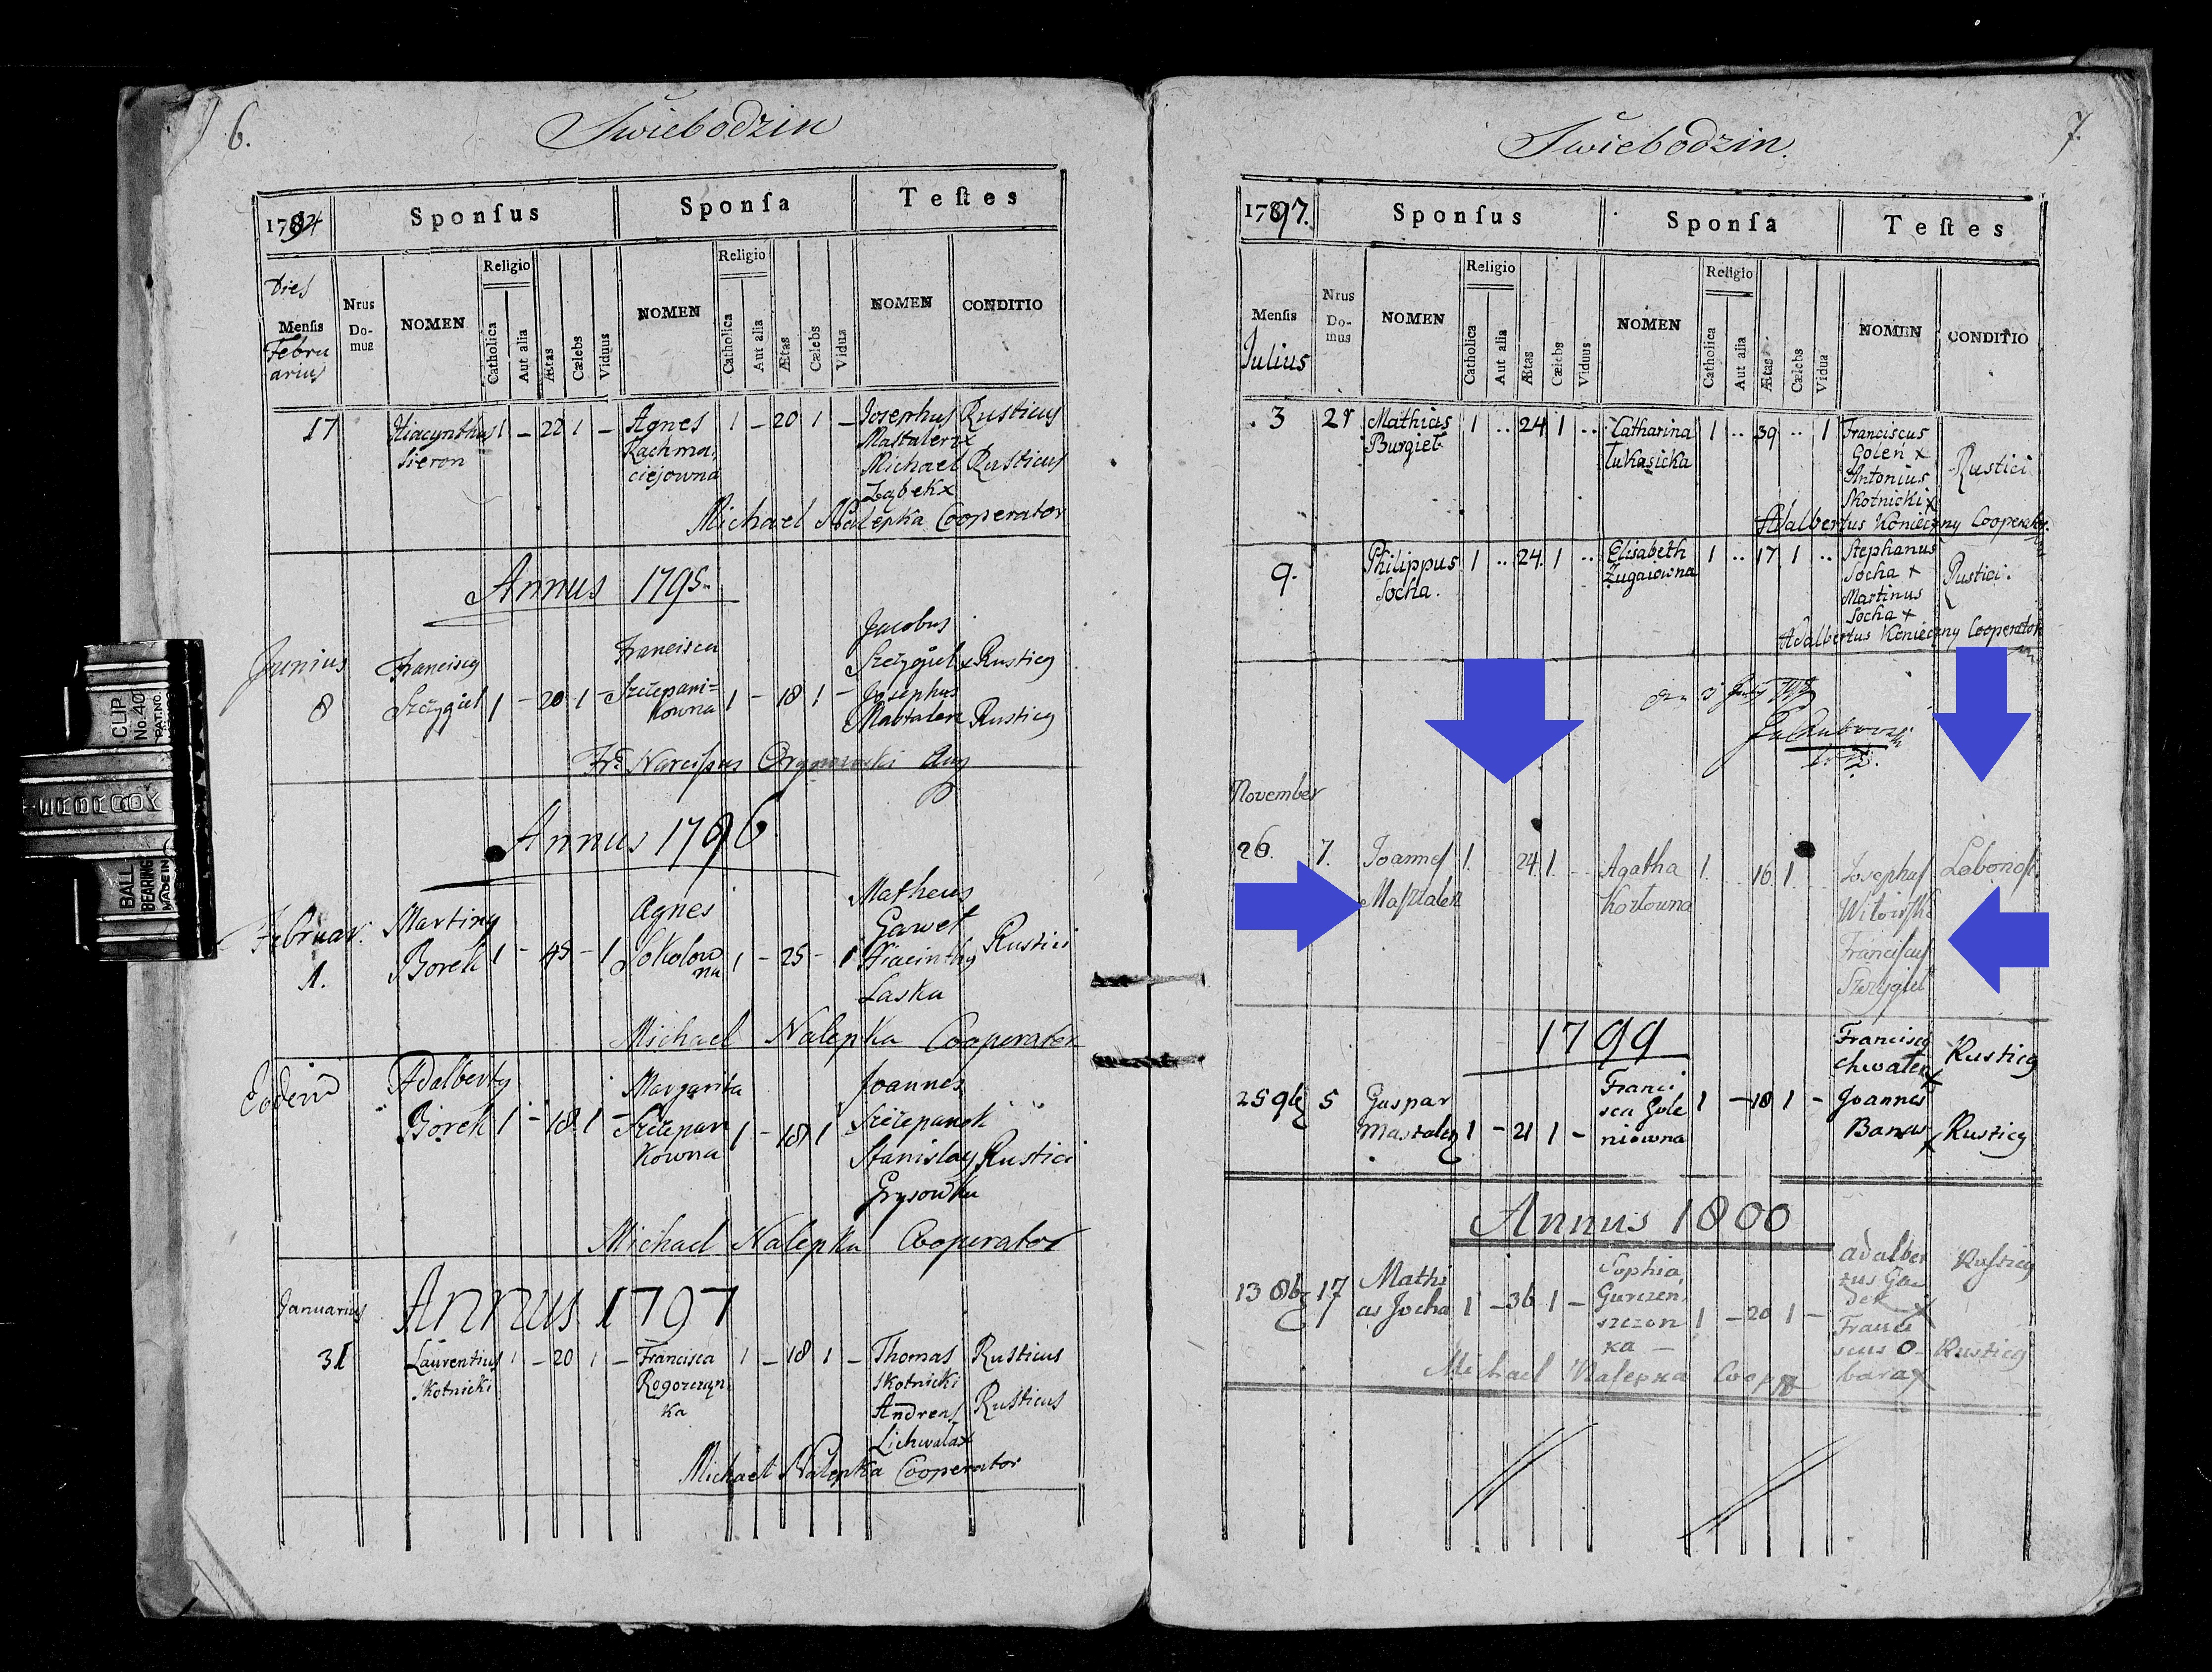 6.
Świebodzin
1794
Sponſus
Sponſa
Teſtes
Dies
Menſis
Febru
arius
Nrus
Do-
mus
NOMEN
Religio
Catholica
Aut alia
Ætas
Cælebs
Viduus
NOMEN
Religio
Catholica
Aut alia
Ætas
Cælebs
Vidua
NOMEN
CONDITIO
17 Hiacynthus 1 – 22 1 – Agnes 1 – 20 1 – Josephus Rusticus
Sieron Kachma, Mastalerz x
ciejowna Michael Rusticus
Ząbek x
Michael Nalepka Cooperator
Annus 1795.
Junius Franciscus Francisca Jacobus
Szczygiel x Rusticus
8 Szczygiel 1 – 20 1 – Szczepani= 1 – 18 1 – Josephus
kowna Mastalerz Rusticus
Fr. Narcissus
Annus 1796
Februar. Martinus Agnes Matheus
Gaweł
1. Borek 1 – 45 – 1 Sokolow 1 – 25 – 1 Hiacinthus Rustici
na Laska
Michael Nalepka Cooperator
Eodem Adalbertus Margarita Joannes
Borek 1 – 18 1 – Szczepan 1 – 18 1 Szczepanek
kowna Stanislaus Rustici
Grysowka
Michael Nalepka Cooperator
Januarius Annus 1797
31 Laurentius 1 – 20 1 – Francisca 1 – 18 1 – Thomas Rusticus
Skotnicki Rogorczyn Skotnicki
ka Andreas Rusticus
Lichwala x
Michael Nalepka Cooperator
7.
Świebodzin.
1797.
Sponſus
Sponſa
Teſtes
Menſis
Julius
Nrus
Do-
mus
NOMEN
Religio
Catholica
Aut alia
Ætas
Cælebs
Viduus
NOMEN
Religio
Catholica
Aut alia
Ætas
Cælebs
Vidua
NOMEN
CONDITIO
3 21 Mathias 1 .. 24 1 .. Catharina 1 .. 39 .. 1 Franciscus
Burgiel Łukasicka Golen x
Antonius Rustici
Skotnicki x
Adalbertus Konieczny Cooperator.
9. Philippus 1 .. 24 1 .. Elisabeth 1 .. 17 1 .. Stephanus
Socha. Zugaiowna Socha x Rustici.
Martinus
Socha x
Adalbertus Konieczny Cooperator
November
26. 7. Joannes 1. 24 1. Agatha 1. 16 1. Josephus
Masztalerz Kozłowna
Franciscus
Szczygieł
1799
Franciscus Rusticus
Chwałek x
25 9br 5 Gaspar Franci
sca Gole 1 – 18 1 – Joannes
Mastalerz 1 – 21 1 – niowna Banas x Rusticus
Annus 1800
Adalber Rusticus
13 8br 17 Mathi Sophia tus Ga
as Socha 1 – 36 1 – Gurczen, 1 – 20 1 – dek x
szczon Franci
ka – scus O- Rusticus
bara x
Michael Nalepka Coopr
CLIP
No. 40
PAT. NO.
BALL
BEARING
MADE IN